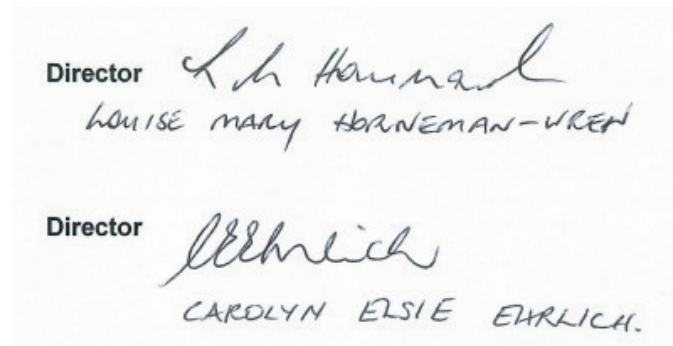 Director
LOUISE MARY HORNEMAN-WREN
Director CEEhrlich
CAROLYN ELSIE EHRLICH.